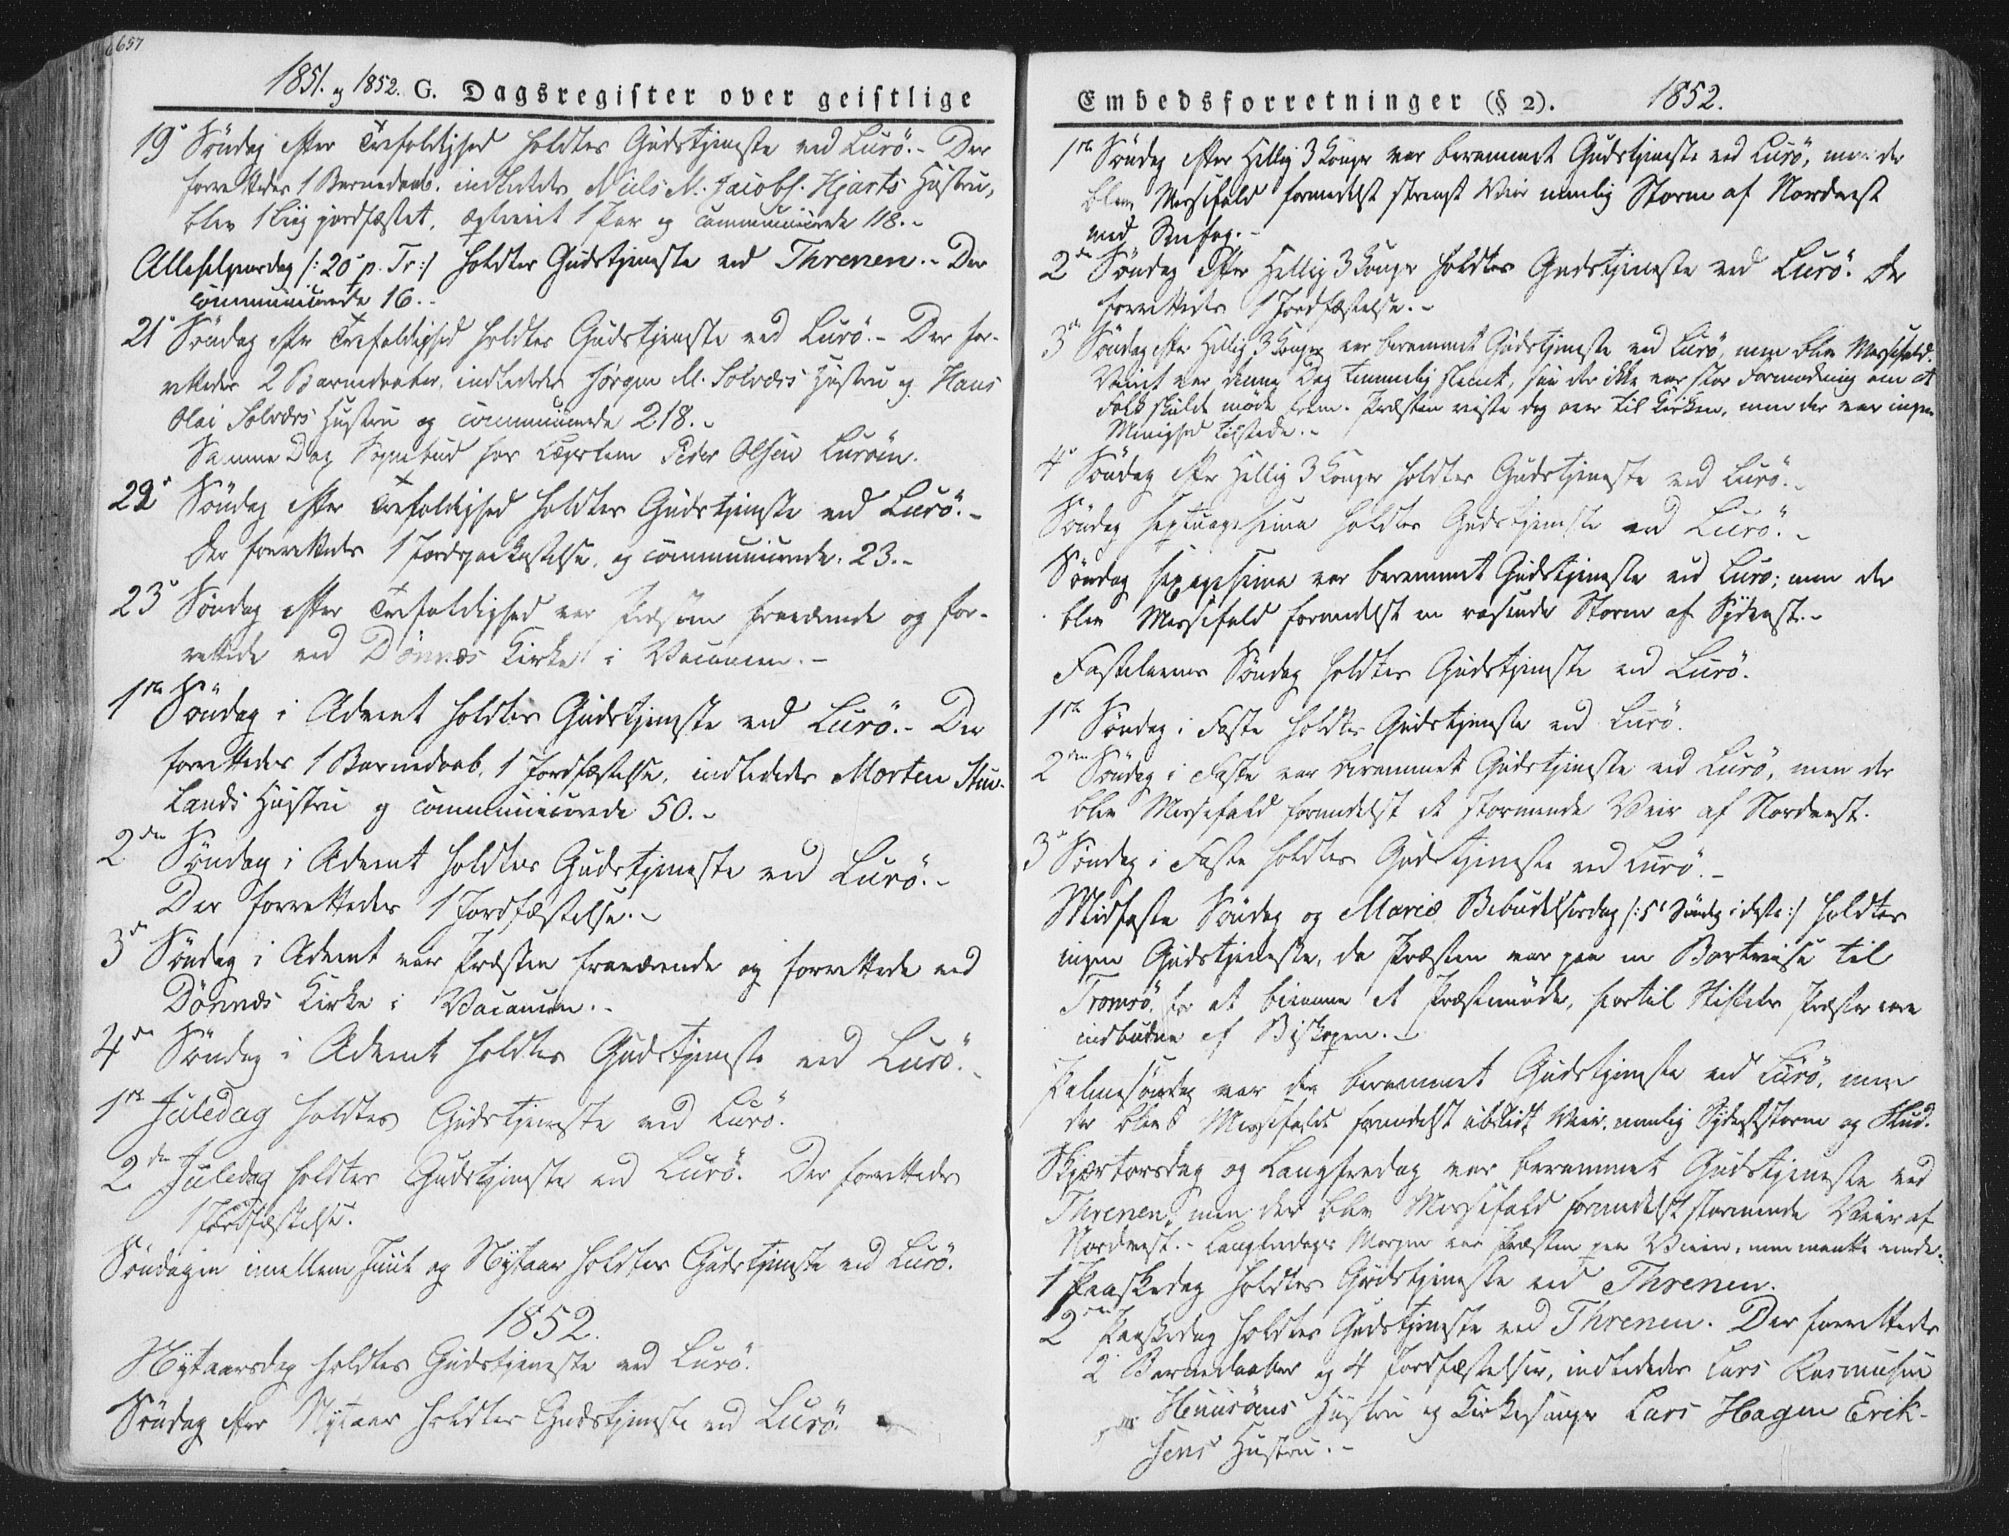 657
1851. og 1852. G. Dagsregister over geistlige
19de Søndag efter Trefoldighed holdtes Gudstjeneste ved Lurö.- Der
forrettedes 1 Barnedaab, indlededes Niels M. Jacobs. Hjarts Hustru,
blev 1 Liig jordfæstet, ægteviet 1 Par og communicerede 118.-
Allehelgensdag /: 20de p. Tr :/ holdtes Gudstjeneste ved Threnen.- Der
communicerede 16.-
21de Søndag efter Trefoldighed holdtes Gudstjeneste ved Lurö.- Der for-
rettedes 2 Barnedaaber, indlededes Jörgen M. Solværs Hustru og Hans
Olai Solværs Hustru og communicerede 218.-
Samme Dag Sognebud hos Peder Olsen Luröen.
22de Søndag efter Trefoldighed holdtes Gudstjeneste ved Lurö.-
Der forrettedes 1 Jordpaakastelse, og communicerede 23.-
23de Søndag efter Trefoldighed var Præsten fraværende og for-
rettede ved Dönnæs Kirke i Vacancen.-
1ste Søndag i Advent holdtes Gudstjeneste ved Lurö.- Der
forrettedes 1 Barnedaab, 1 Jordfæstelse, indlededes Morten
Lands Hustru og communicerede 50.-
2den Søndag i Advent holdtes Gudstjeneste ved Lurö.-
Der forrettedes 1 Jordfæstelse.-
3die Søndag i Advent var Præsten fraværende og forrettede ved
Dönnæs Kirke i Vacancen.-
4de Søndag i Advent holdtes Gudstjeneste ved Lurö.-
1ste Juledag holdtes Gudstjeneste ved Lurö.
2den Juledag holdtes Gudstjeneste ved Lurö. Der forrettedes
1 Jordfæstelse.
Søndagen imellem Juul og Nytaar holdtes Gudstjeneste ved Lurö.
1852.
Nytaarsdag holdtes Gudstjeneste ved Lurö.
Søndag efter Nytaar holdtes Gudstjeneste ved Lurö.
Embedsforretninger (§ 2). 1852.
1ste Søndag efter Hellig 3 Konger var berammet Gudstjeneste ved Lurö, men der
blev Messefald formedelst strengt Veir nemlig Storm af Nordvest
med Snefog.-
2den Søndag efter Hellig 3 Konger holdtes Gudstjeneste ved Lurö. Der
forrettedes 1 Jordfæstelse.-
3die Søndag efter Hellig 3 Konger var berammet Gudstjeneste ved Lurö, men blev Messefald.
Veiret var denne Dag temmelig slemt, saa der ikke var stor Formodning om at
Folk skulde møde frem. Præsten reiste dog over til Kirken, men der var ingen
Menighed tilstede.-
4de Søndag efter Hellig 3 Konger holdtes Gudstjeneste ved Lurö.-
Søndag Septuagesima holdtes Gudstjeneste ved Lurö.-
Søndag Sexagesima var berammet Gudstjeneste ved Lurö; men der
blev Messefald formedelst en rasende Storm af Sydvest.-
Fastelavns Søndag holdtes Gudstjeneste ved Lurö.
1ste Søndag i Faste holdtes Gudstjeneste ved Lurö.
2den Søndag i Faste var berammet Gudstjeneste ved Lurö, men der
blev Messefald formedelst et stormende Veir af Nordvest.
3die Søndag i Faste holdtes Gudstjeneste ved Lurö.-
Midfaste Søndag og Mariæ Bebudelsesdag /: 5te Søndag i Faste :/ holdtes
ingen Gudstjeneste, da Præsten var paa en Bortreise til
Tromsö, for at bivaane et Præstemøde, hvortil Stiftets Præster vare
indbudne af Biskopen.-
Palmesøndag var der berammet Gudstjeneste ved Lurö, men
der blev Messefald formedelst ustadigt Veir, nemlig Sydveststorm og Slud.
Skjærtorsdag og Langfredag var berammet Gudstjeneste ved
Threnen, men der blev Messefald formedelst stormende Veir af
Nordvest.- Langfredags Morgen var Præsten paa Veien, men maatte vende.
1 Paaskedag holdtes Gudstjeneste ved Threnen.
2den Paaskedag holdtes Gudstjeneste ved Threnen. Der forrettedes
2 Barnedaaber og 4 Jordfæstelser, indlededes Lars Rasmusen
Hustru og Kirkesanger Lars Hagen Erik-
sens Hustru.-